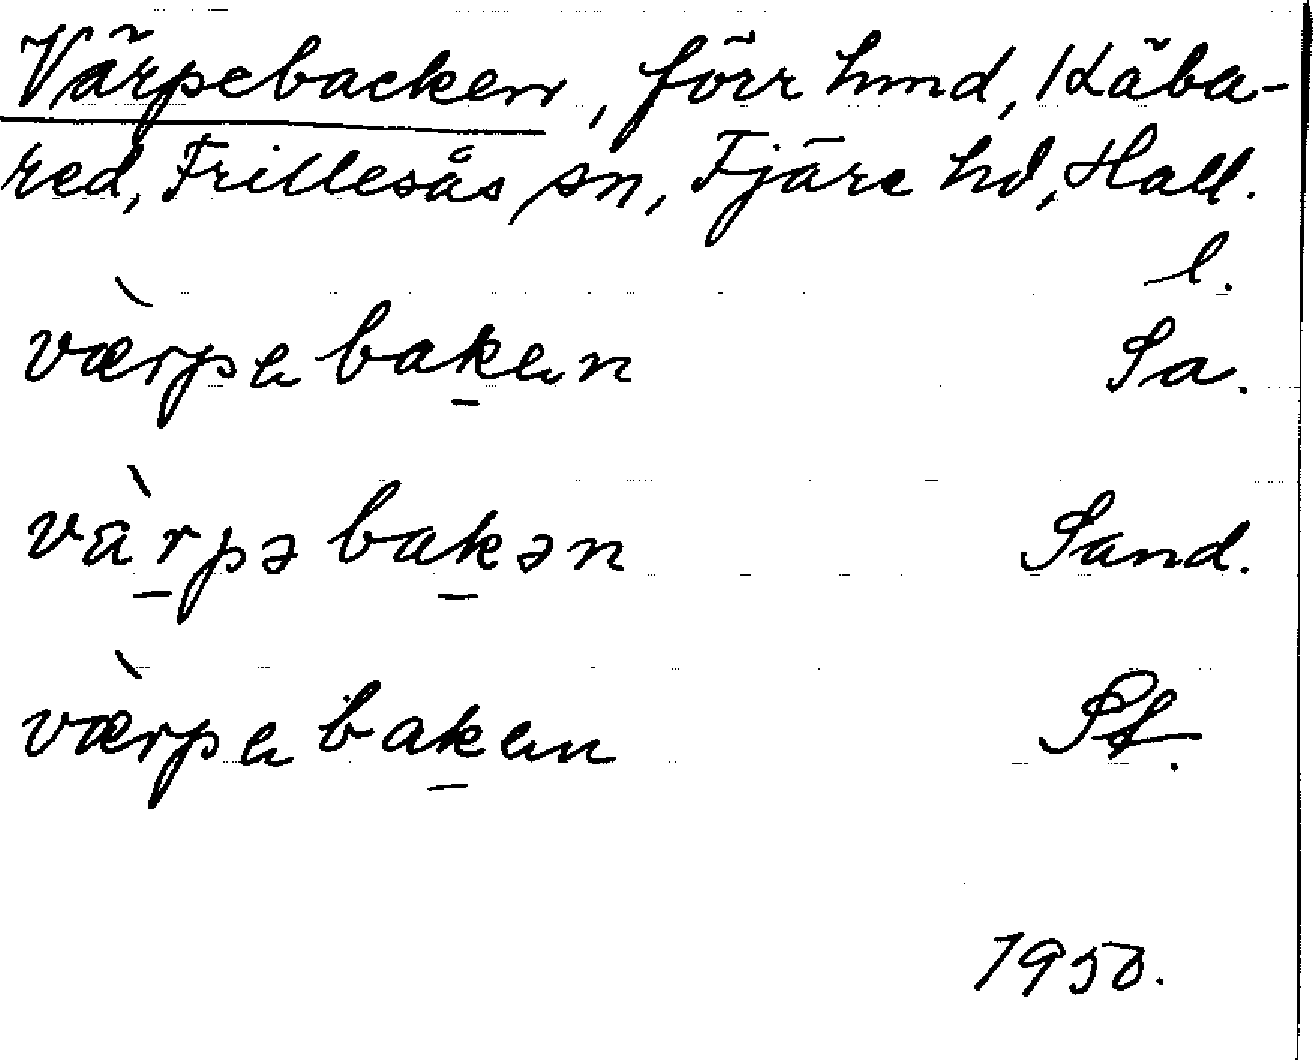 Värpebacken, förr hmd, Käba-
red, Frillesås sn, Fjäre hd, Hall.
l.
værpebaken Sa.
värpəbakən Sand.
værpebaken St.
1950.